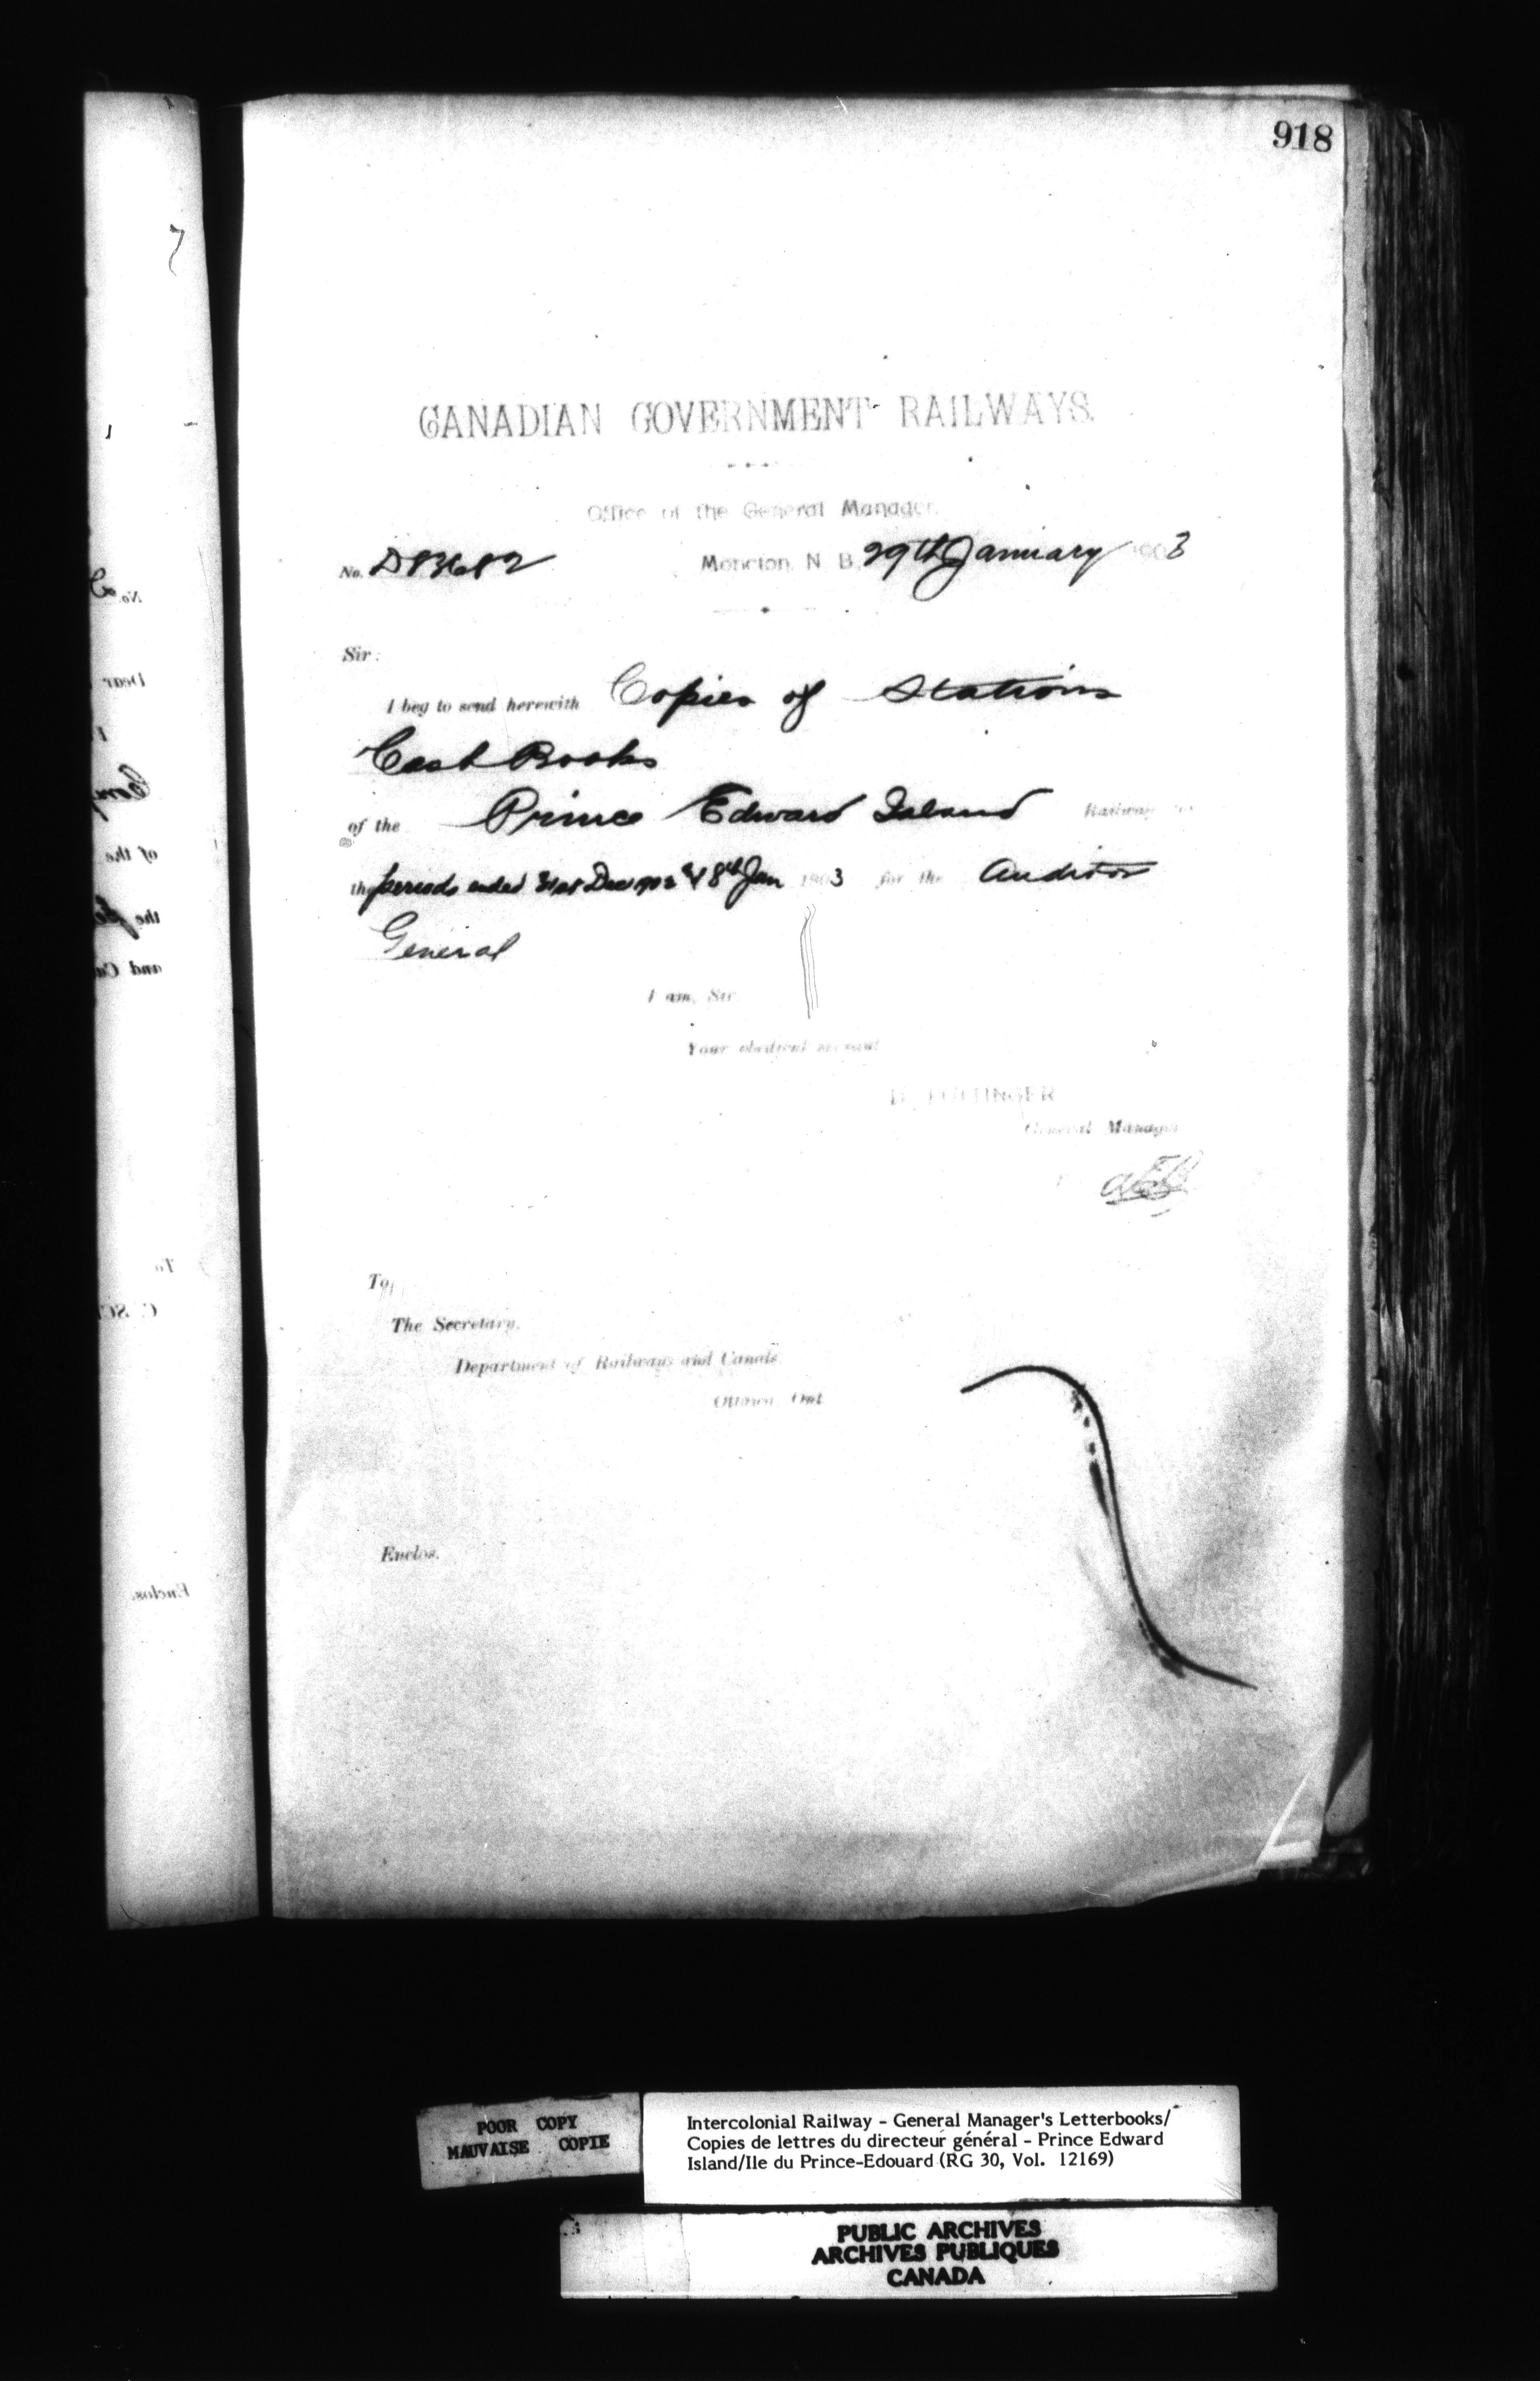 918
CANADIAN GOVERNMENT RAILWAYS.
Office of the General Manager.
No. D83682 Moncton, N. B. 29th January 1903
Sir:
I beg to send herewith Copies of Stations
Cash Books
of the Prince Edward Island Railway for
the periods ended 31st Dec 1902 & 8th Jan 1903 for the Auditor
General
I am, Sir
Your obedient servant
D. POTTINGER
General Manager
To,
The Secretary,
Department of Railways and Canals
Ottawa Ont
Enclos.
POOR COPY
MAUVAISE COPIE
Intercolonial Railway - General Manager's Letterbooks/
Copies de lettres du directeur général - Prince Edward
Island/Ile du Prince-Edouard (RG 30, Vol. 12169)
PUBLIC ARCHIVES
ARCHIVES PUBLIQUES
CANADA